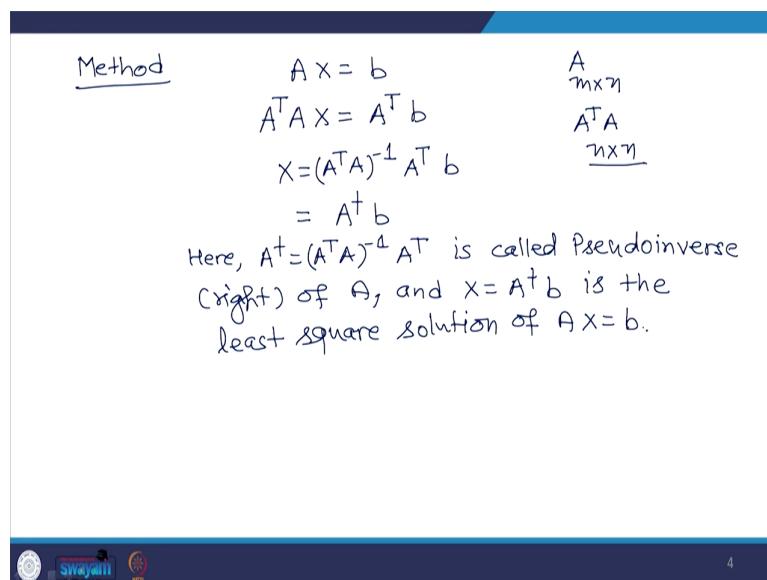 Method
A X = b
AᵀA X = Aᵀ b
X = (AᵀA)⁻¹ Aᵀ b
= A† b
A
m×n
AᵀA
n×n
Here, A† = (AᵀA)⁻¹ Aᵀ is called Pseudoinverse
(right) of A, and X = A† b is the
least square solution of A X = b.
swayam
4